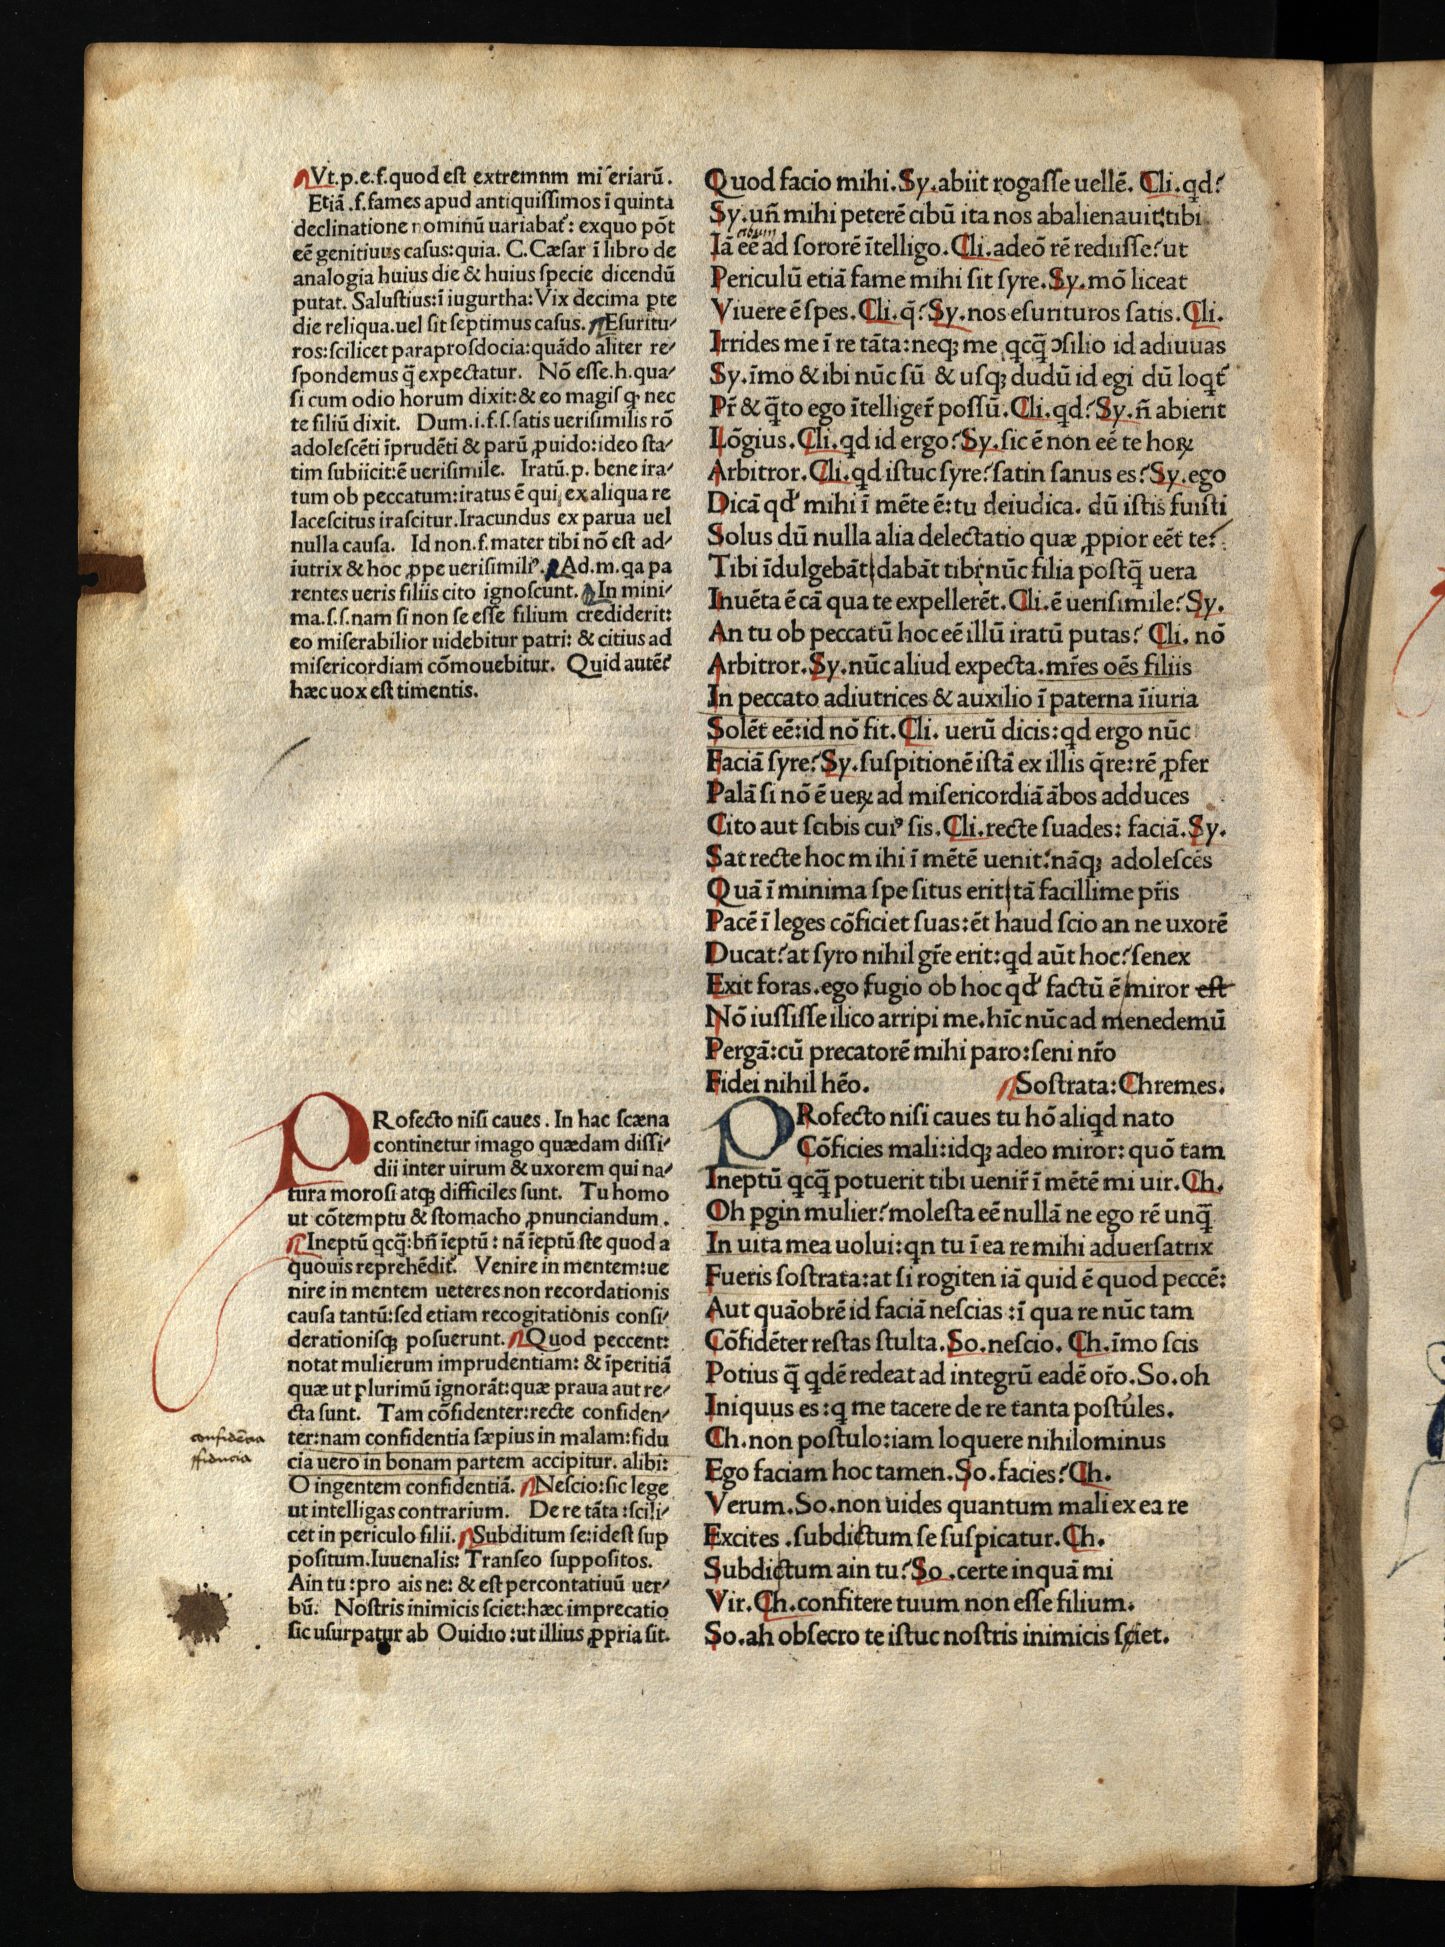 Vt.p.e.f.quod est extremnm miseriarũ.
Etiã.f.fames apud antiquissimos ĩ quinta
declinatione nominũ uariabat᷑: exquo põt
eẽ genitiuus casus:quia. C.Cæsar ĩ libro de
analogia huius die & huius specie dicendũ
putat. Salustius:ĩ iugurtha:Vix decima pte
die reliqua.uel sit septimus casus. Esuritu-
ros:scilicet paraprosdocia:quãdo aliter re-
spondemus q̃ expectatur. Nõ esse.h.qua-
si cum odio horum dixit:& eo magis q nec
te filiũ dixit. Dum.i.f.s.satis uerisimilis rõ
adolescẽti ĩprudẽti & parũ ꝓuido:ideo sta-
tim subiicit:ẽ uerisimile. Iratũ.p. bene ira-
tum ob peccatum:iratus ẽ qui ex aliqua re
lacescitus irascitur.Iracundus ex parua uel
nulla causa. Id non.f.mater tibi nõ est ad-
iutrix & hoc ꝓpe uerisimiliꝰ. Ad.m.qa pa
rentes ueris filiis cito ignoscunt. In mini-
ma.s.s.nam si non se esse filium crediderit:
eo miserabilior uidebitur patri: & citius ad
misericordiam cõmouebitur. Quid autẽ᷑
hæc uox est timentis.
PRofecto nisi caues. In hac scæna
continetur imago quædam dissi-
dii inter uirum & uxorem qui na-
tura morosi atqꝫ difficiles sunt. Tu homo
ut cõtemptu & stomacho ꝓnunciandum.
Ineptũ qcq̃:bñ ĩeptũ: nã ĩeptũ ste quod a
quouis reprehẽdit᷑. Venire in mentem:ue
nire in mentem ueteres non recordationis
causa tantũ:sed etiam recogitationis consi-
derationisqꝫ posuerunt. Quod peccent:
notat mulierum imprudentiam: & ĩperitiã
quæ ut plurimũ ignorãt:quæ praua aut re-
cta sunt. Tam cõfidenter:recte confiden-
confidẽcia
ter:nam confidentia sæpius in malam:fidu
ffiducia
cia uero in bonam partem accipitur. alibi:
O ingentem confidentiã. Nescio:sic lege
ut intelligas contrarium. De re tãta:scili-
cet in periculo filii. Subditum se:idest sup
positum.Iuuenalis: Transeo suppositos.
Ain tu:pro ais ne: & est percontatiuũ uer-
bũ. Nostris inimicis sciet:hæc imprecatio
sic usurpatur ab Ouidio:ut illius ꝓpria sit.
Quod facio mihi.Sy.abiit rogasse uellẽ. Cli.qd?
Sy.uñ mihi peterẽ cibũ ita nos abalienauit:tibi
Iã eẽ ad sororẽ ĩtelligo.Cli.adeõ rẽ rediisse?ut
Periculũ etiã fame mihi sit syre.Sy.mõ liceat
Viuere ẽ spes.Cli.q̃?Sy.nos esurituros satis.Cli.
Irrides me ĩ re tãta:neqꝫ me qcq̃ ↄsilio id adiuuas
Sy.ĩmo & ibi nũc sũ & usqꝫ dudũ id egi dũ loqt᷑
Pr̃ & q̃to ego ĩtelliger̃ possũ.Cli.qd?Sy.ñ abierit
Lõgius.Cli.qd id ergo?Sy.sic ẽ non eẽ te hoꝝ
Arbitror.Cli.qd istuc syre?satin sanus es?Sy.ego
Dicã qd mihi ĩ mẽte ẽ:tu deiudica. dũ istis fuisti
Solus dũ nulla alia delectatio quæ ꝓpior eẽt te?
Tibi ĩdulgebãt dabãt tibi:nũc filia postq̃ uera
Inuẽta ẽ cã qua te expellerẽt.Cli.ẽ uerisimile?Sy.
An tu ob peccatũ hoc eẽ illũ iratũ putas? Cli. nõ
Arbitror.Sy.nũc aliud expecta.mr̃es oẽs filiis
In peccato adiutrices & auxilio ĩ paterna ĩiuria
Solẽt eẽ:id nõ fit.Cli. uerũ dicis:qd ergo nũc
Faciã syre?Sy.suspitionẽ istã ex illis q̃re:rẽ ꝓfer
Palã si nõ ẽ ueꝝ ad misericordiã ãbos adduces
Cito aut scibis cuiꝰ sis.Cli.recte suades: faciã.Sy.
Sat recte hoc mihi ĩ mẽtẽ uenit:nãqꝫ adolescẽs
Quã ĩ minima spe situs erit tã facillime pr̃is
Pacẽ ĩ leges cõficiet suas:ẽt haud scio an ne uxorẽ
Ducat?at syro nihil gr̃e erit:qd aũt hoc?senex
Exit foras.ego fugio ob hoc qd factũ ẽ miror est
Nõ iussisse ilico arripi me.hĩc nũc ad menedemũ
Pergã:cũ precatorẽ mihi paro:seni nr̃o
Fidei nihil hẽo. Sostrata:Chremes.
PRofecto nisi caues tu hõ aliqd nato
Cõficies mali:idqꝫ adeo miror: quõ tam
Ineptũ qcq̃ potuerit tibi uenir̃ ĩ mẽtẽ mi uir.Ch.
Oh pgin mulier?molesta eẽ nullã ne ego rẽ unq̃
In uita mea uolui:qn tu ĩ ea re mihi aduersatrix
Fueris sostrata:at si rogiten iã quid ẽ quod peccẽ:
Aut quãobrẽ id faciã nescias:ĩ qua re nũc tam
Cõfidẽter restas stulta.So.nescio. Ch.ĩmo scis
Potius q̃ qdẽ redeat ad integrũ eadẽ or̃o.So.oh
Iniquus es:q me tacere de re tanta postules.
Ch.non postulo:iam loquere nihilominus
Ego faciam hoc tamen.So.facies?Ch.
Verum.So.non uides quantum mali ex ea re
Excites.subdictum se suspicatur.Ch.
Subdictum ain tu?So.certe inquã mi
Vir.Ch.confitere tuum non esse filium.
So.ah obsecro te istuc nostris inimicis sciet.